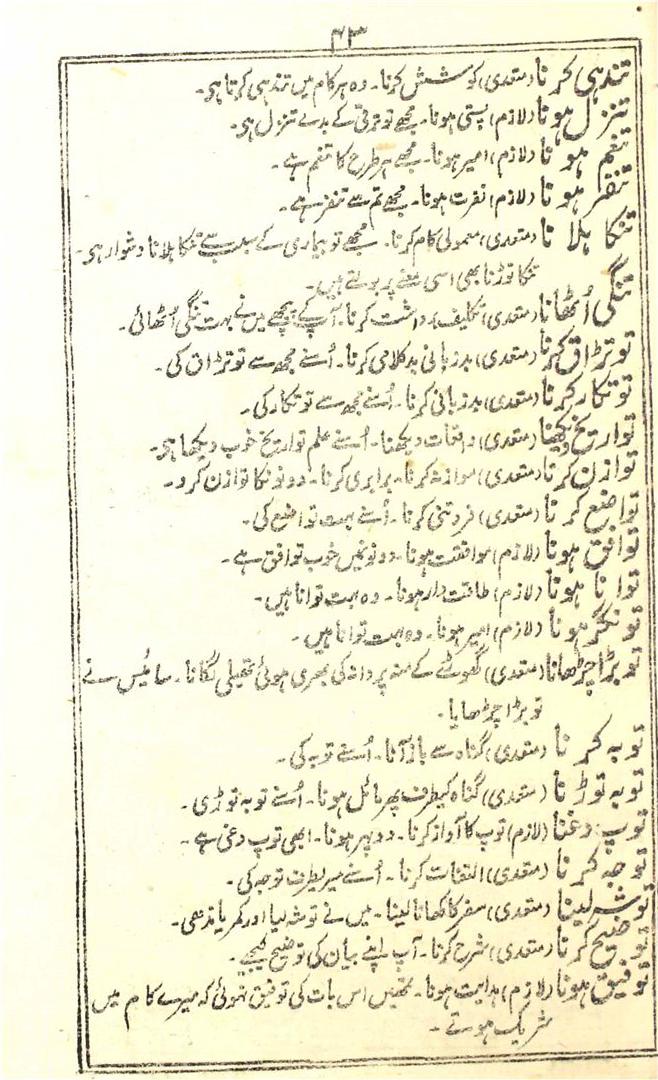 ۴۳
تندہی کرنا (متعدی) کوشش کرنا۔ وہ ہر کام میں تندہی کرتا ہی۔
تنزل ہونا (لازم) پستی ہونا۔ مجھے تو ترقی کے بدلے تنزل ہی۔
تنعم ہونا (لازم) امیر ہونا۔ مجھے ہر طرح کا تنعم ہے۔
تنفر ہونا (لازم) نفرت ہونا۔ مجھے تم سے تنفر ہے۔
تنکا ہلانا (متعدی) معمولی کام کرنا۔ مجھے تو بیماری کے سبب سے تنکا ہلانا دشوار ہی۔
تنکا توڑنا بھی اسی معنے پر بولتے ہیں۔
تنگی اُٹھانا (متعدی) تکلیف برداشت کرنا۔ آپ کے پیچھے میں نے بہت تنگی اُٹھائی۔
توتڑاق کرنا (متعدی) بدزبانی بدکلامی کرنا۔ اُسنے مجھ سے توتڑاق کی۔
توتکار کرنا (متعدی) بدزبانی کرنا۔ اُسنے مجھ سے توتکار کی۔
تواریخ دیکھنا (متعدی) واقعات دیکھنا۔ اُسنے علم تواریخ خوب دیکھا ہی۔
توازن کرنا (متعدی) موازنہ کرنا۔ برابری کرنا۔ دونونکا توازن کرو۔
تواضع کرنا (متعدی) فروتنی کرنا۔ اُسنے بہت تواضع کی۔
توافق ہونا (لازم) موافقت ہونا۔ دونونمیں خوب توافق ہے۔
توانا ہونا (لازم) طاقت دار ہونا۔ وہ بہت توانا ہیں۔
تونگر ہونا (لازم) امیر ہونا۔ وہ بہت توانا ہیں۔
توبڑا چڑھانا (متعدی) گھوڑے کے منہ پر دانہ کی بھری ہوئی تھیلی لگانا۔ سائیس نے
توبڑا چڑھایا۔
توبہ کرنا (متعدی) گناہ سے باز آنا۔ اُسنے توبہ کی۔
توبہ توڑنا (متعدی) گناہ کیطرف پھر مائل ہونا۔ اُسنے توبہ توڑی۔
توپ دغنا (لازم) توپ کا آواز کرنا۔ دوپہر ہونا۔ ابھی توپ دغی ہے۔
توجہ کرنا (متعدی) التفات کرنا۔ اُسنے میریطرف توجہ کی۔
توشہ لینا (متعدی) سفر کا کھانا لینا۔ میں نے توشہ لیا اور کمر باندھی۔
توضیح کرنا (متعدی) شرح کرنا۔ آپ اپنے بیان کی توضیح کیجیے۔
توفیق ہونا (لازم) ہدایت ہونا۔ تمھیں اس بات کی توفیق نہوئی کہ میرے کام میں
شریک ہوتے۔